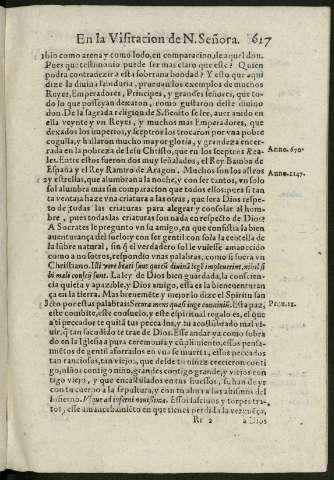 En la Visitacion de N. Señora. 627
bio como arena y como lodo, en comparacion de aquel don.
Pues que testimonio puede ser mas claro que este? Quien
podra contradezir a esta soberana bondad? Y esto que aqui
dize la diuina sabiduria, prueuan los exemplos de muchos
Reyes, Emperadores, Principes, y grandes señores, que to-
do lo que posseyan dexaron, como gustaron deste diuino
don. De la sagrada religion de S. Benito se lee, auer auido en
ella veynte y un Reyes, y muchos mas Emperadores, que
dexados los imperios, y sceptros los trocaron por vna pobre
cogulla, y hallaron mucho mayor gloria, y grandeza encer-
rada en la pobreza de Iesu Christo, que en los sceptros Rea-
les. Entre estos fueron dos muy señalados, el Rey Bamba de
España y el Rey Ramiro de Aragon. Muchos son los astros
y estrellas, que alumbran a la noche, y con ser tantos, vn solo
sol alumbra mas sin comparacion que todos ellos: pues si tan
ta ventaja haze vna criatura a las otras, que sera Dios respe-
to de todas las criaturas para alegrar y consolar al hom-
bre, pues todas las criaturas son nada en respecto de Dios?
A Socrates le pregunto vn su amigo, en que consistia la bien
auenturança del suelo: y con ser gentil con sola la centella de
la lũbre natural, sin q̃ el verdadero sol le vuiesse amanecido
como a nosotros, respondio vnas palabras, como si fuera vn
Christiano.
quieta y apazible, y Dios amigo, essa es la bienauenturan
ça en la tierra. Mas breuemẽte y mejor lo dize el Spiritu san
cto por estas palabras: Secura mens quasi iuge conuiuium. Esta paz,
este combite, este consuelo, y este spiritual regalo es, el que
a ti peccador te quitã tus peccados, y tu acostũbrado mal vi-
uir, q̃ tan sacudido te trae de Dios. Esse andar ya como sobra
do en la Iglesia a pura ceremonia y cũplimiento, esses pensa-
miẽtos de gentil aforrados en vña de muerta, esses peccados
tan ranciosos, tan viejos, que desde tu niñez crecieron conti
go, niños contigo niño, grandes contigo grande, y viejos con
tigo viejo, y que encastillados en tus huessos, se han de yr
con tu cuerpo a la sepultura, y con tu alma a los abismos del
infierno. Vsque ad inferni nouissima. Essos lasciuos y torpes tra-
tos, esse amancebamiẽto en que tienes perdida la verguẽça,
Rr 2 a Dios
Anno. 670.
Anno. 1147.
Prou. 15.